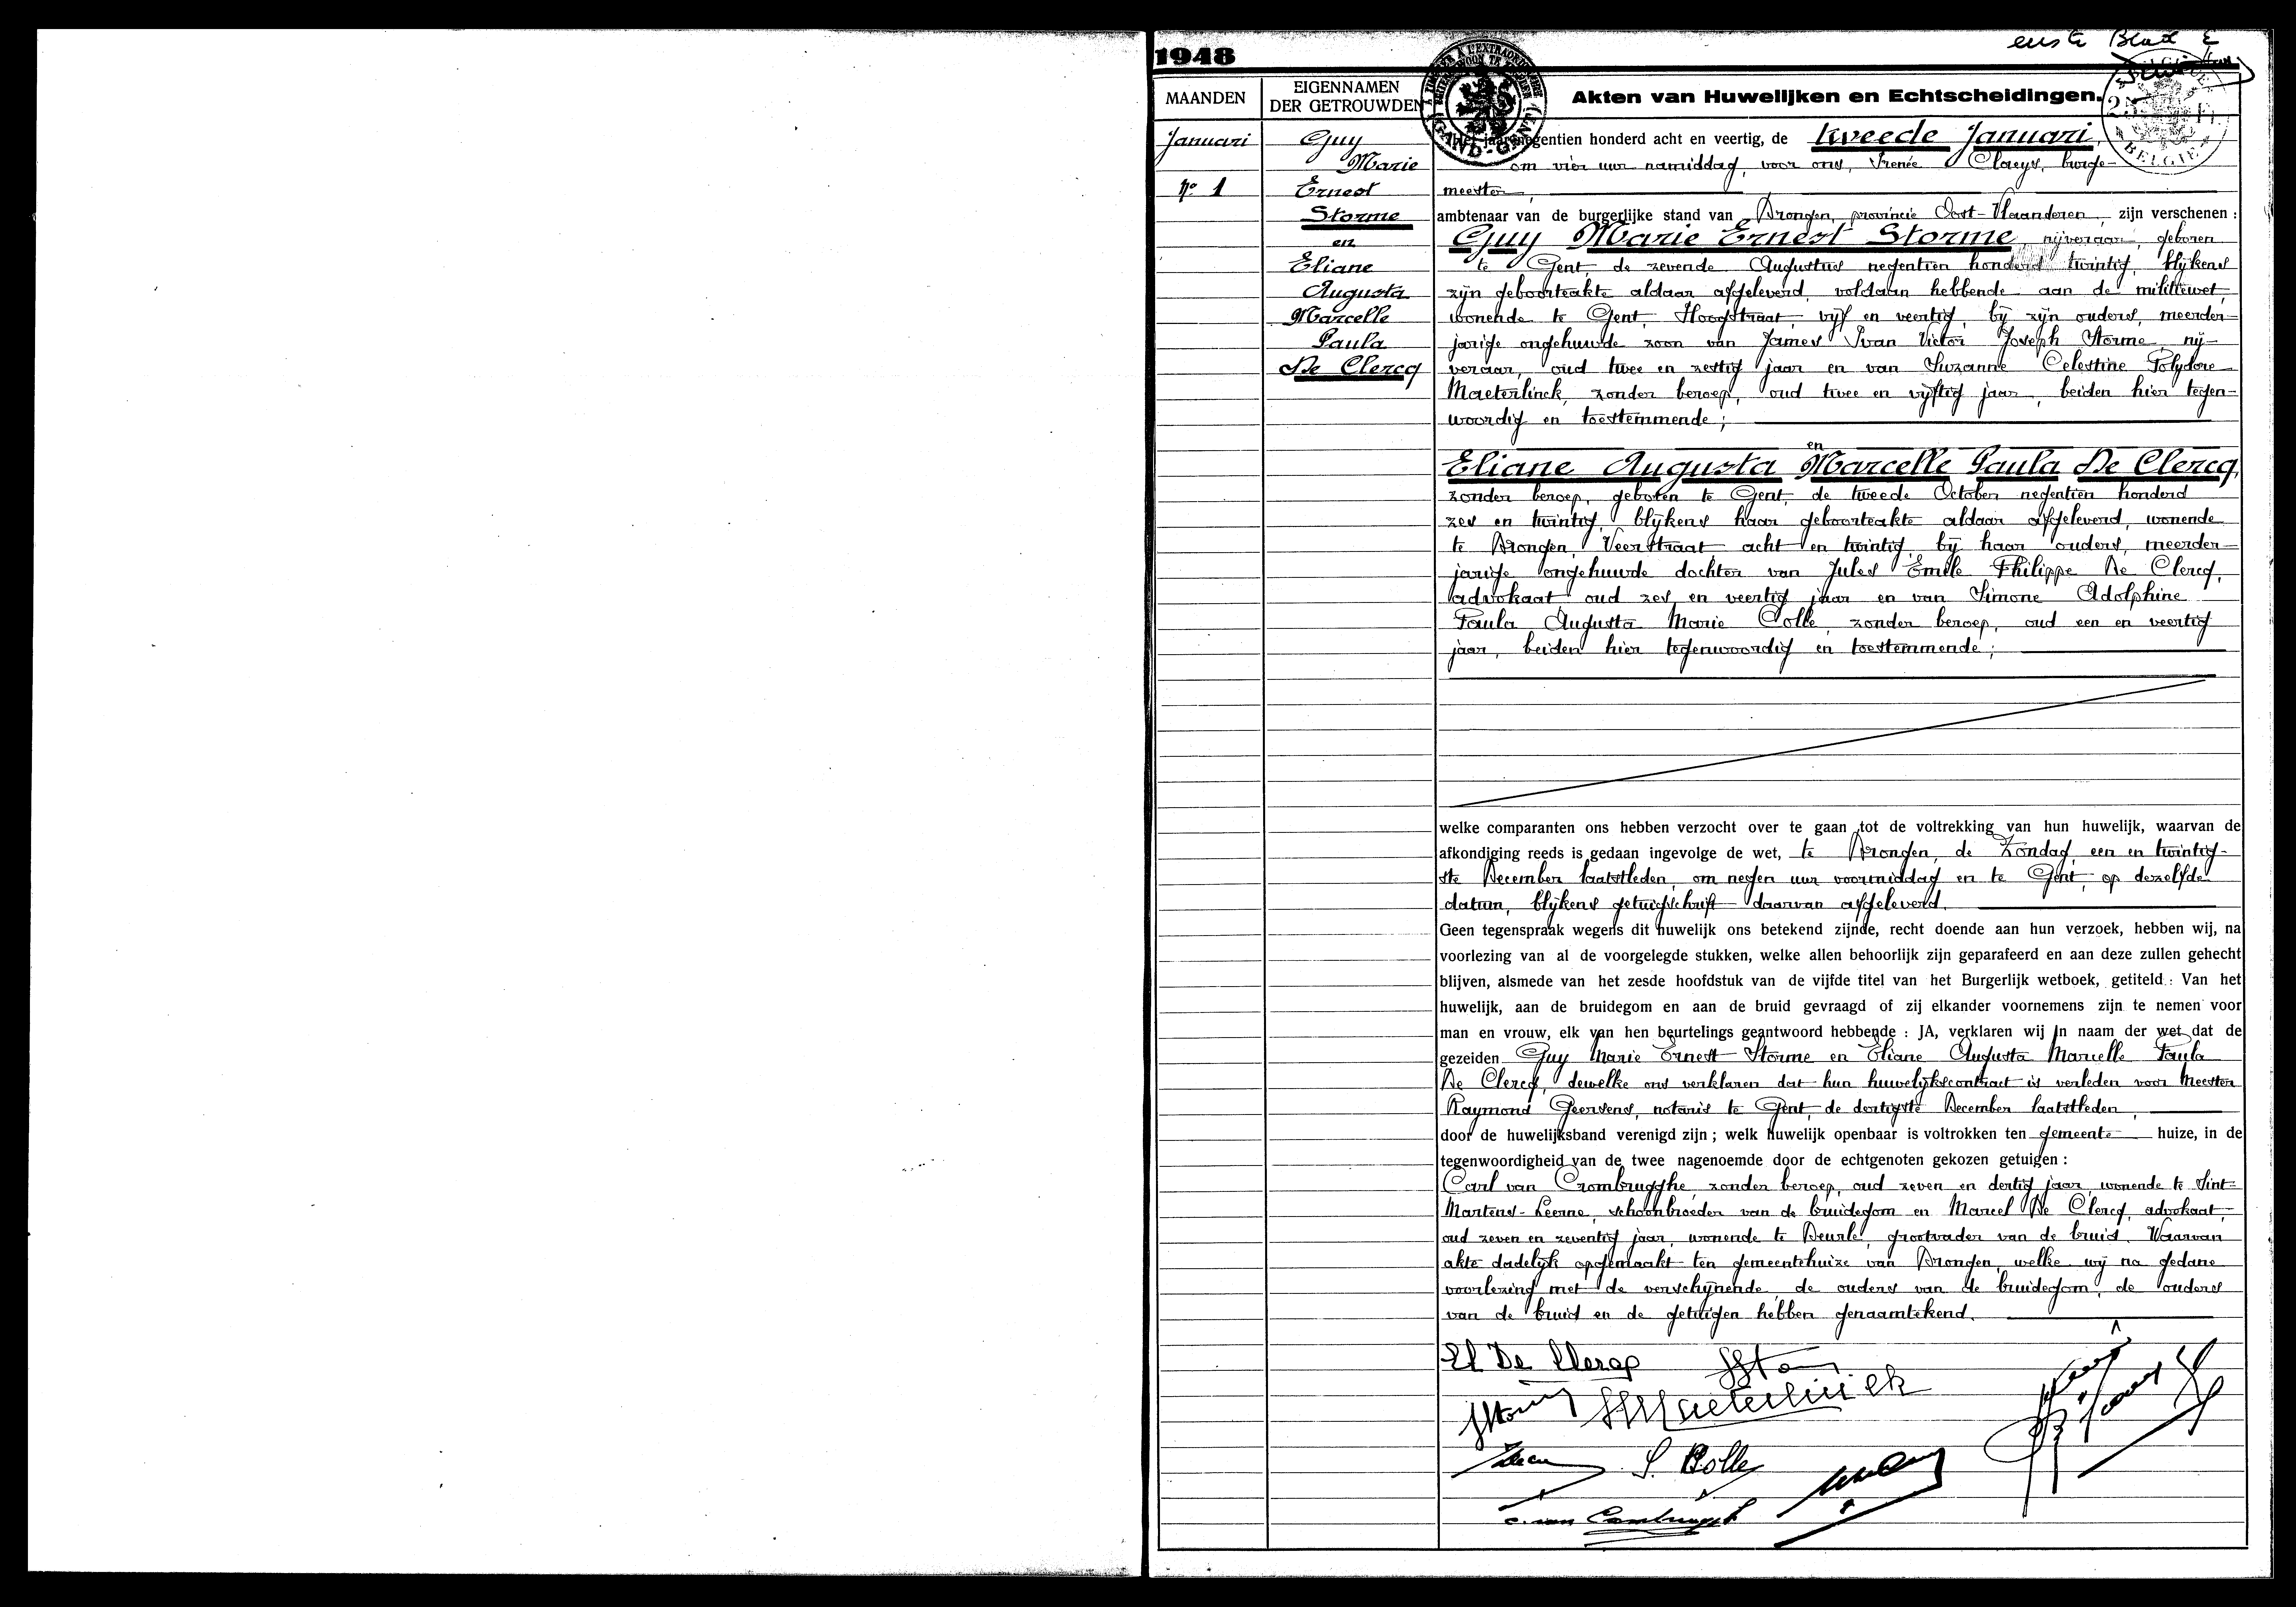 eerste Blad
1948
MAANDEN
EIGENNAMEN
DER GETROUWDEN
Akten van Huwelijken en Echtscheidingen.
GAND-GENT
BELGIË
Januari
Nº 1
Guy
Marie
Ernest
Storme
en
Eliane
Augusta
Marcelle
Paula
De Clercq
Het jaar negentien honderd acht en veertig, de tweede Januari,
om vier uur namiddag, voor ons, Irenée Claeys, burge-
meester,
ambtenaar van de burgerlijke stand van Drongen, provincie Oost-Vlaanderen, zijn verschenen :
Guy Marie Ernest Storme, nijveraar, geboren
te Gent, de zevende Augustus negentien honderd twintig, blijkens
zijn geboorteakte aldaar afgeleverd, voldaan hebbende aan de militiewet,
wonende te Gent, Hoogstraat, vijf en veertig, bij zijn ouders, meerder-
jarige ongehuwde zoon van James Ivan Victor Joseph Storme, nij-
veraar, oud twee en zestig jaar en van Suzanne Celestine Polydore
Maeterlinck, zonder beroep, oud twee en vijftig jaar, beiden hier tegen-
woordig en toestemmende;
en
Eliane Augusta Marcelle Paula De Clercq,
zonder beroep, geboren te Gent, de tweede October negentien honderd
zes en twintig, blijkens haar geboorteakte aldaar afgeleverd, wonende
te Drongen, Veerstraat acht en twintig, bij haar ouders, meerder-
jarige ongehuwde dochter van Jules Emile Philippe De Clercq,
advokaat oud zes en veertig jaar en van Simone Adolphine
Paula Augusta Marie Bolle, zonder beroep, oud een en veertig
jaar, beiden hier tegenwoordig en toestemmende;
welke comparanten ons hebben verzocht over te gaan tot de voltrekking van hun huwelijk, waarvan de
afkondiging reeds is gedaan ingevolge de wet, te Drongen, de Zondag, een en twintig-
ste December laatstleden, om negen uur voormiddag en te Gent, op dezelfde
datum, blijkens getuigschrift daarvan afgeleverd.
Geen tegenspraak wegens dit huwelijk ons betekend zijnde, recht doende aan hun verzoek, hebben wij, na
voorlezing van al de voorgelegde stukken, welke allen behoorlijk zijn geparafeerd en aan deze zullen gehecht
blijven, alsmede van het zesde hoofdstuk van de vijfde titel van het Burgerlijk wetboek, getiteld : Van het
huwelijk, aan de bruidegom en aan de bruid gevraagd of zij elkander voornemens zijn te nemen voor
man en vrouw, elk van hen beurtelings geantwoord hebbende : JA, verklaren wij in naam der wet dat de
gezeiden Guy Marie Ernest Storme en Eliane Augusta Marcelle Paula
De Clercq, dewelke ons verklaren dat hun huwelijkscontract is verleden voor Meester
Raymond Geersens, notaris te Gent, de dertigste December laatstleden,
door de huwelijksband verenigd zijn ; welk huwelijk openbaar is voltrokken ten gemeente huize, in de
tegenwoordigheid van de twee nagenoemde door de echtgenoten gekozen getuigen :
Carl van Crombrugghe, zonder beroep, oud zeven en dertig jaar, wonende te Sint-
Martens-Leerne, schoonbroeder van de bruidegom en Marcel De Clercq, advokaat,
oud zeven en zeventig jaar, wonende te Deurle, grootvader van de bruid. Waarvan
akte dadelijk opgemaakt ten gemeentehuize van Drongen, welke wij na gedane
voorlezing met de verschijnende, de ouders van de bruidegom, de ouders
van de bruid en de getuigen hebben genaamtekend.
El De Clercq
Maeterlinck
S. Bolle
c. van Crombrugghe